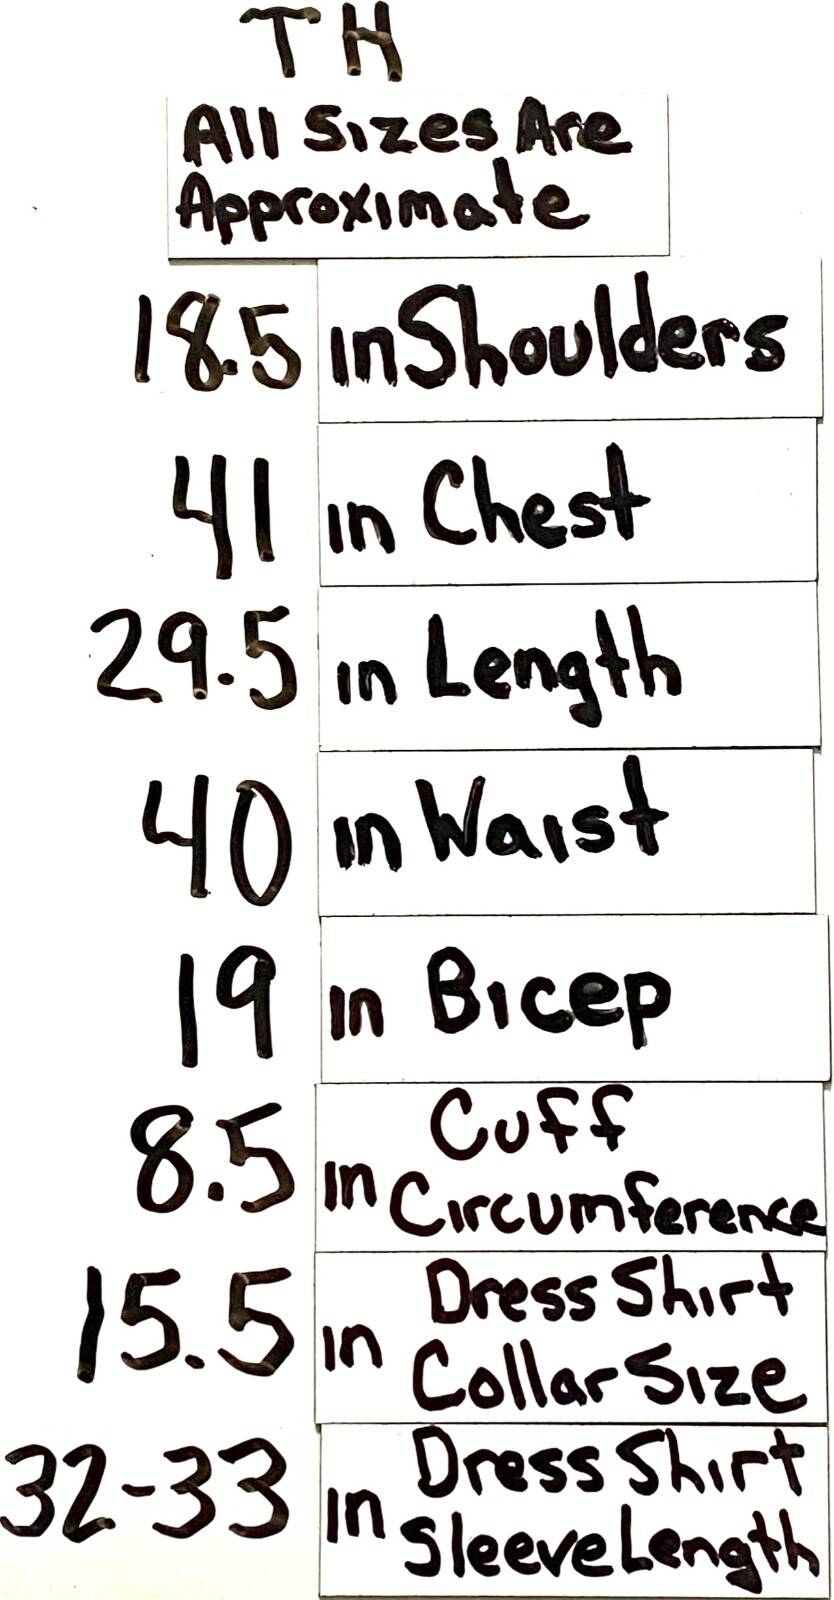 TH
All Sizes Are
Approximate
18.5 in Shoulders
41 in Chest
29.5 in Length
40 in Waist
19 in Bicep
8.5 in Cuff
Circumference
15.5 in Dress Shirt
Collar Size
32-33 in Dress Shirt
Sleeve Length